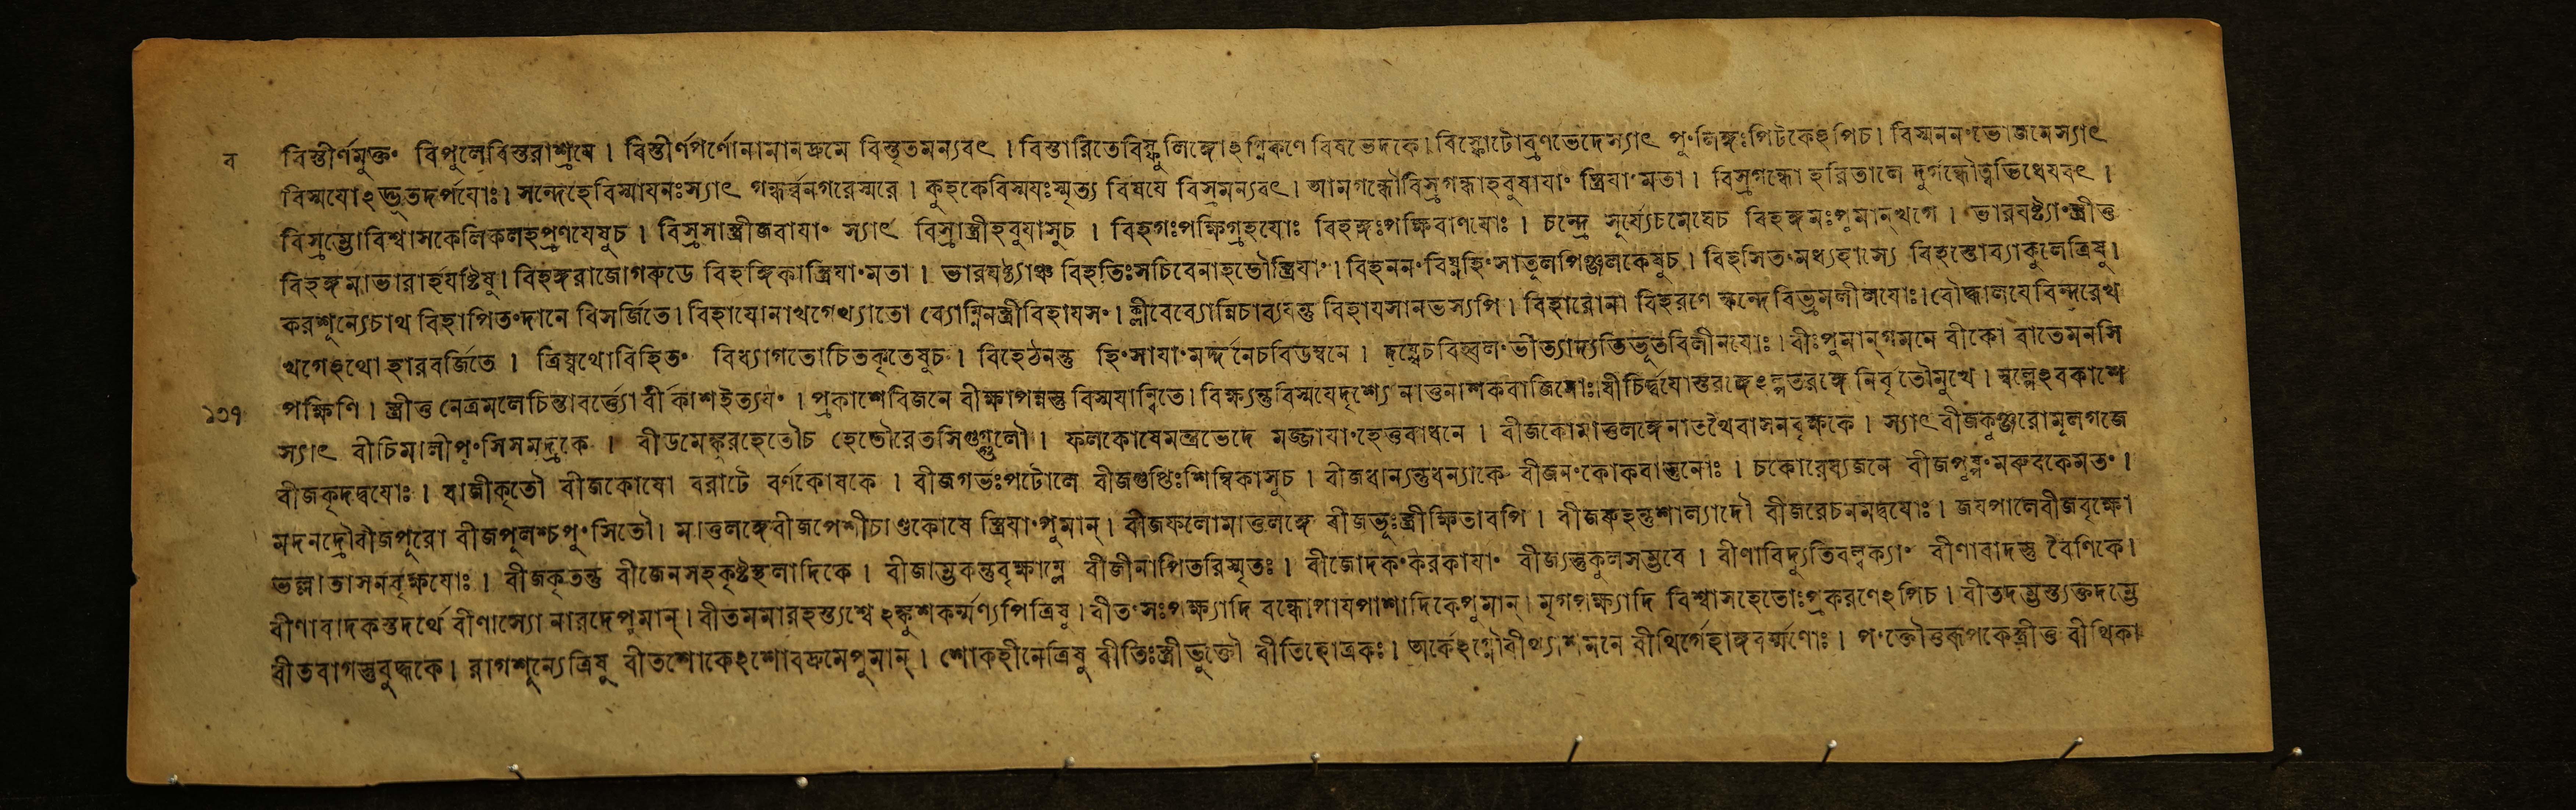 ব বিস্তীর্ণমুক্তং বিপুলেবিস্তরাশ্রযে । বিস্তীর্ণপর্ণোনামানদ্রুমে বিস্তৃতমন্যবৎ । বিস্তারিতেবিস্ফুলিঙ্গোঽগ্নিকণে বিষভেদকে । বিস্ফোটোব্রণভেদেস্যাৎ পুংলিঙ্গঃপিটকেঽপিচ । বিস্মননংভোজনেস্যাৎ
বিস্মযোঽদ্ভুতদর্পযোঃ । সন্দেহেবিস্মাযনঃস্যাৎ গন্ধর্ব্বনগরেস্মরে । কুহকেবিস্ময়ঃস্মৃত্য বিষযে বিস্রমন্যবৎ । আমগন্ধৌবিস্রগন্ধাহবুষাযাং স্ত্রিযাংমতা । বিস্রগন্ধো হরিতালে দুর্গন্ধৌত্বভিধেযবৎ ।
বিস্রম্ভোবিশ্বাসকেলিকলহপ্রণযেষুচ । বিস্রসাস্ত্রীজরাযাং স্যাৎ বিস্রাস্ত্রীহবুষাসুচ । বিহগঃপক্ষিগ্রহযোঃ বিহঙ্গঃপক্ষিবাণযোঃ । চন্দ্রে সূর্য্যেচমেঘেচ বিহঙ্গমঃপুমান্‌খগে । ভারযষ্ট্যাংস্ত্রীত্ত
বিহঙ্গমাভারার্হযষ্টিষু । বিহঙ্গরাজোগরুডে বিহঙ্গিকাস্ত্রিযাংমতা । ভারযষ্ট্যাঞ্চ বিহতিঃসচিবেনাহতৌস্ত্রিযাং । বিহননংবিঘ্নহিংসাতূলপিঞ্জলকেষুচ । বিহসিতংমধ্যহাস্যে বিহস্তোব্যাকুলেত্রিষু ।
করশূন্যেচাথ বিহাপিতংদানে বিসর্জিতে । বিহাযোনাখগেখ্যাতো ব্যোম্নিনস্ত্রীবিহাযসং । ক্লীবেব্যোম্নিচাব্যযন্তু বিহাযসানভস্যপি । বিহারোনা বিহরণে স্কন্দেবিভ্রমলীলযোঃ । বৌদ্ধালযেবিন্দরেখ
খগেঽথো হারবর্জিতে । ত্রিষ্বথোবিহিতং বিধ্যাগতোচিতকৃতেষুচ । বিহেঠনন্তু হিংসাযাংমর্দ্দনেচবিডম্বনে । দম্ভেচবিহ্বলংভীত্যাদ্যভিভূতবিলীনযোঃ । বীঃপুমান্‌গমনে বীকো বাতেমনসি
১৩৭ পক্ষিণি । স্ত্রীত্ত নেত্রমলেচিন্তাবর্ত্ত্যো বীর্কাশইত্যযং । প্রকাশেবিজনে বীক্ষাপন্নস্তু বিস্ময়ান্বিতে । বিক্ষ্যন্তুবিস্মযেদৃশ্যে নাত্তনাশকবাজিনোঃ । বীচির্দ্বযোস্তরঙ্গেঽল্পতরঙ্গে নির্বৃতৌমুখে । স্বল্পেঽবকাশে
স্যাৎ বীচিমালীপুংসিসমুদ্রকে । বীডমেঙ্কুরহেতৌচ হেতৌরেতসিগুগ্গুলৌ । ফলকোষেমন্ত্রভেদে মজ্জাযাংহেত্তবাধনে । বীজকোমাত্তলঙ্গেনাতথৈবাসনবৃক্ষকে । স্যাৎ বীজকুঞ্জরোমূলগজে
বীজকৃদদ্বযোঃ । বাজীকৃতৌ বীজকোষো বরাটে বর্ণকোষকে । বীজগর্ভঃপটোলে বীজগুপ্তিঃশিম্বিকাসুচ । বীজধান্যন্তধন্যাকে বীজনংকোকবাস্তুনোঃ । চকোরেব্যজনে বীজপূরংমরুবকেমতং ।
মদনদ্রৌবীজপূরো বীজপূলশ্চপুংসিতৌ । মাত্তলঙ্গেবীজপেশীচাণ্ডকোষে স্ত্রিযাংপুমান্ । বীজফলোমাত্তলঙ্গে বীজভূঃস্ত্রীক্ষিতাবপি । বীজরুহস্তুশাল্যাদৌ বীজরেচনমদ্বযোঃ । জযপালেবীজবৃক্ষো
ভল্লাতাসনবৃক্ষযোঃ । বীজকৃতন্তু বীজেনসহকৃষ্টহলাদিকে । বীজাম্ভকন্তুবৃক্ষাম্লে বীজীনাপিতরিস্মৃতঃ । বীজোদকংকরকাযাং বীজ্যস্তুকুলসম্ভবে । বীণাবিদ্যুতিবল্লক্যাং বীণাবাদস্তু বৈণিকে ।
বীণাবাদকস্তদর্থে বীণাস্যো নারদেপুমান্ । বীতমমারহস্ত্যশ্বে ঽঙ্কুশকর্ম্মণ্যপিত্রিষু । বীতংসঃপক্ষ্যাদি বন্ধোপাযপাশাদিকেপুমান্ । মৃগপক্ষ্যাদি বিশ্বাসহেতোঃপ্রকরণেঽপিচ । বীতদম্ভস্ত্যক্তদম্ভে
বীতবাগস্তুবুদ্ধকে । রাগশূন্যেত্রিষু বীতশোকেঽশোবদ্রুমেপুমান্ । শোকহীনেত্রিষু বীতিঃস্ত্রীভুক্তৌ বীতিহোত্রকঃ । অর্কেঽগ্নৌবীথ্যা বীথির্গেহাঙ্গবর্ত্মণোঃ । পংক্তৌত্তরূপকেস্ত্রীত্ত বীথিকা